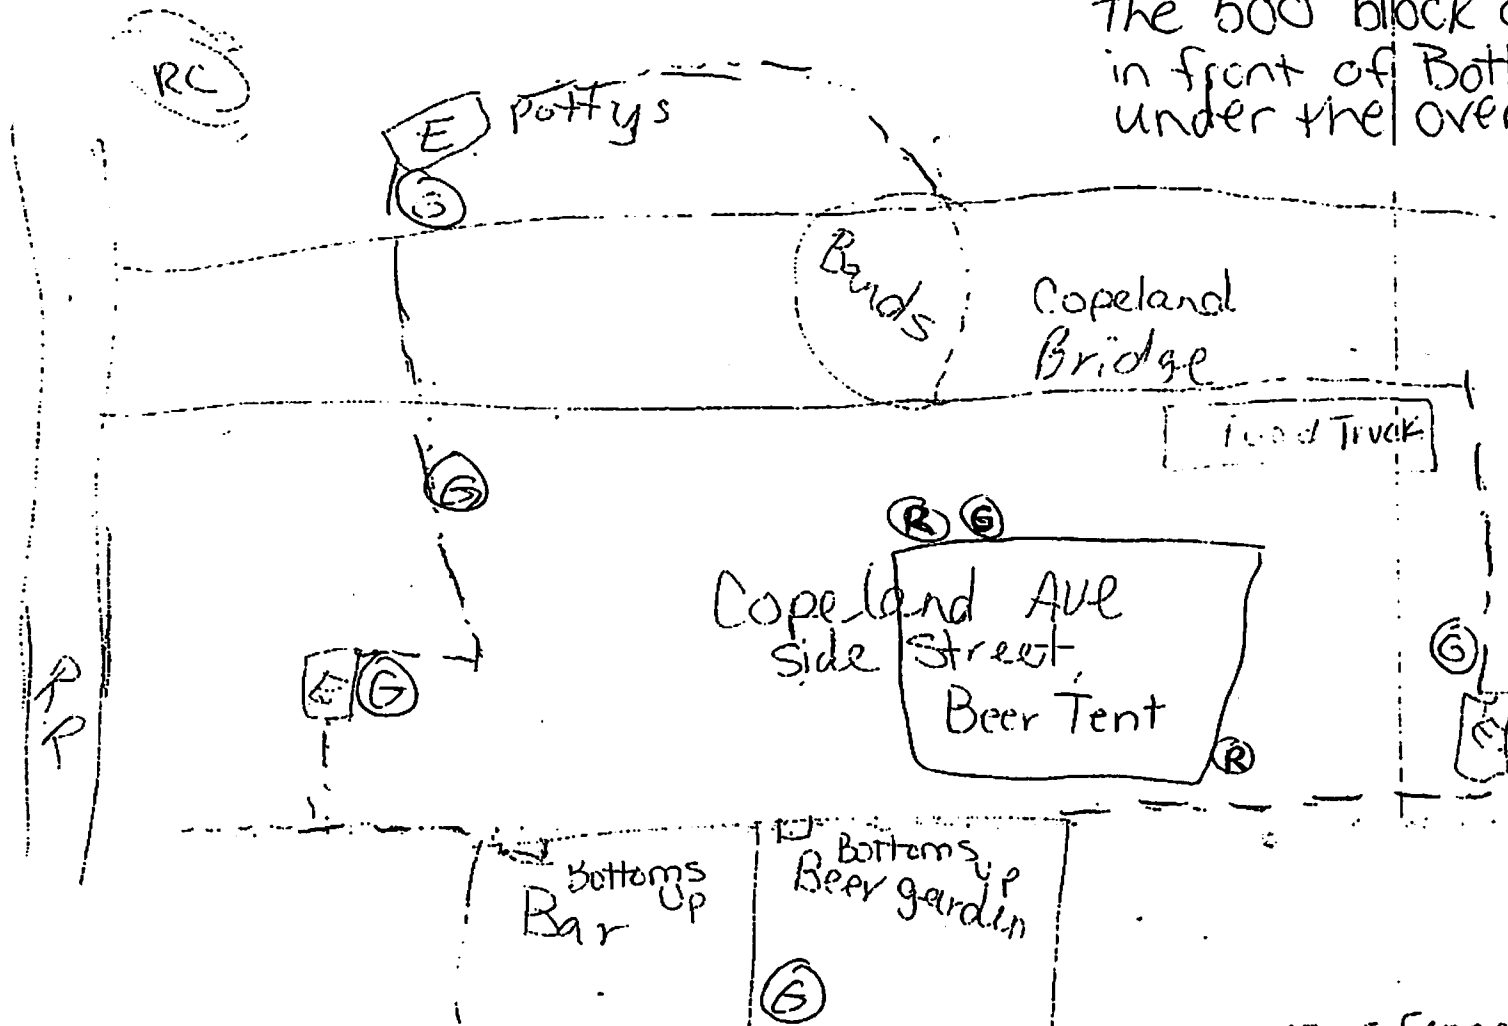 The 500 block
in front of Bott
under the over
RC
E
pottys
G
Bands
Copeland
Bridge
Food Truck
G
R G
Copeland Ave
side Street
Beer Tent
G
E G
R
R
R
E
Bottoms
Up
Bar
Bottoms
Up
Beer gardin
G